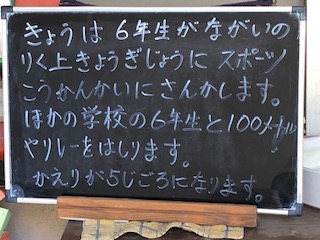 きょうは 6年生が ながいの
りく上きょうぎじょうに スポーツ
こうかんかいにさんかします。
ほかの学校の6年生と100メートル
やリレーをはしります。
かえりが5じごろになります。